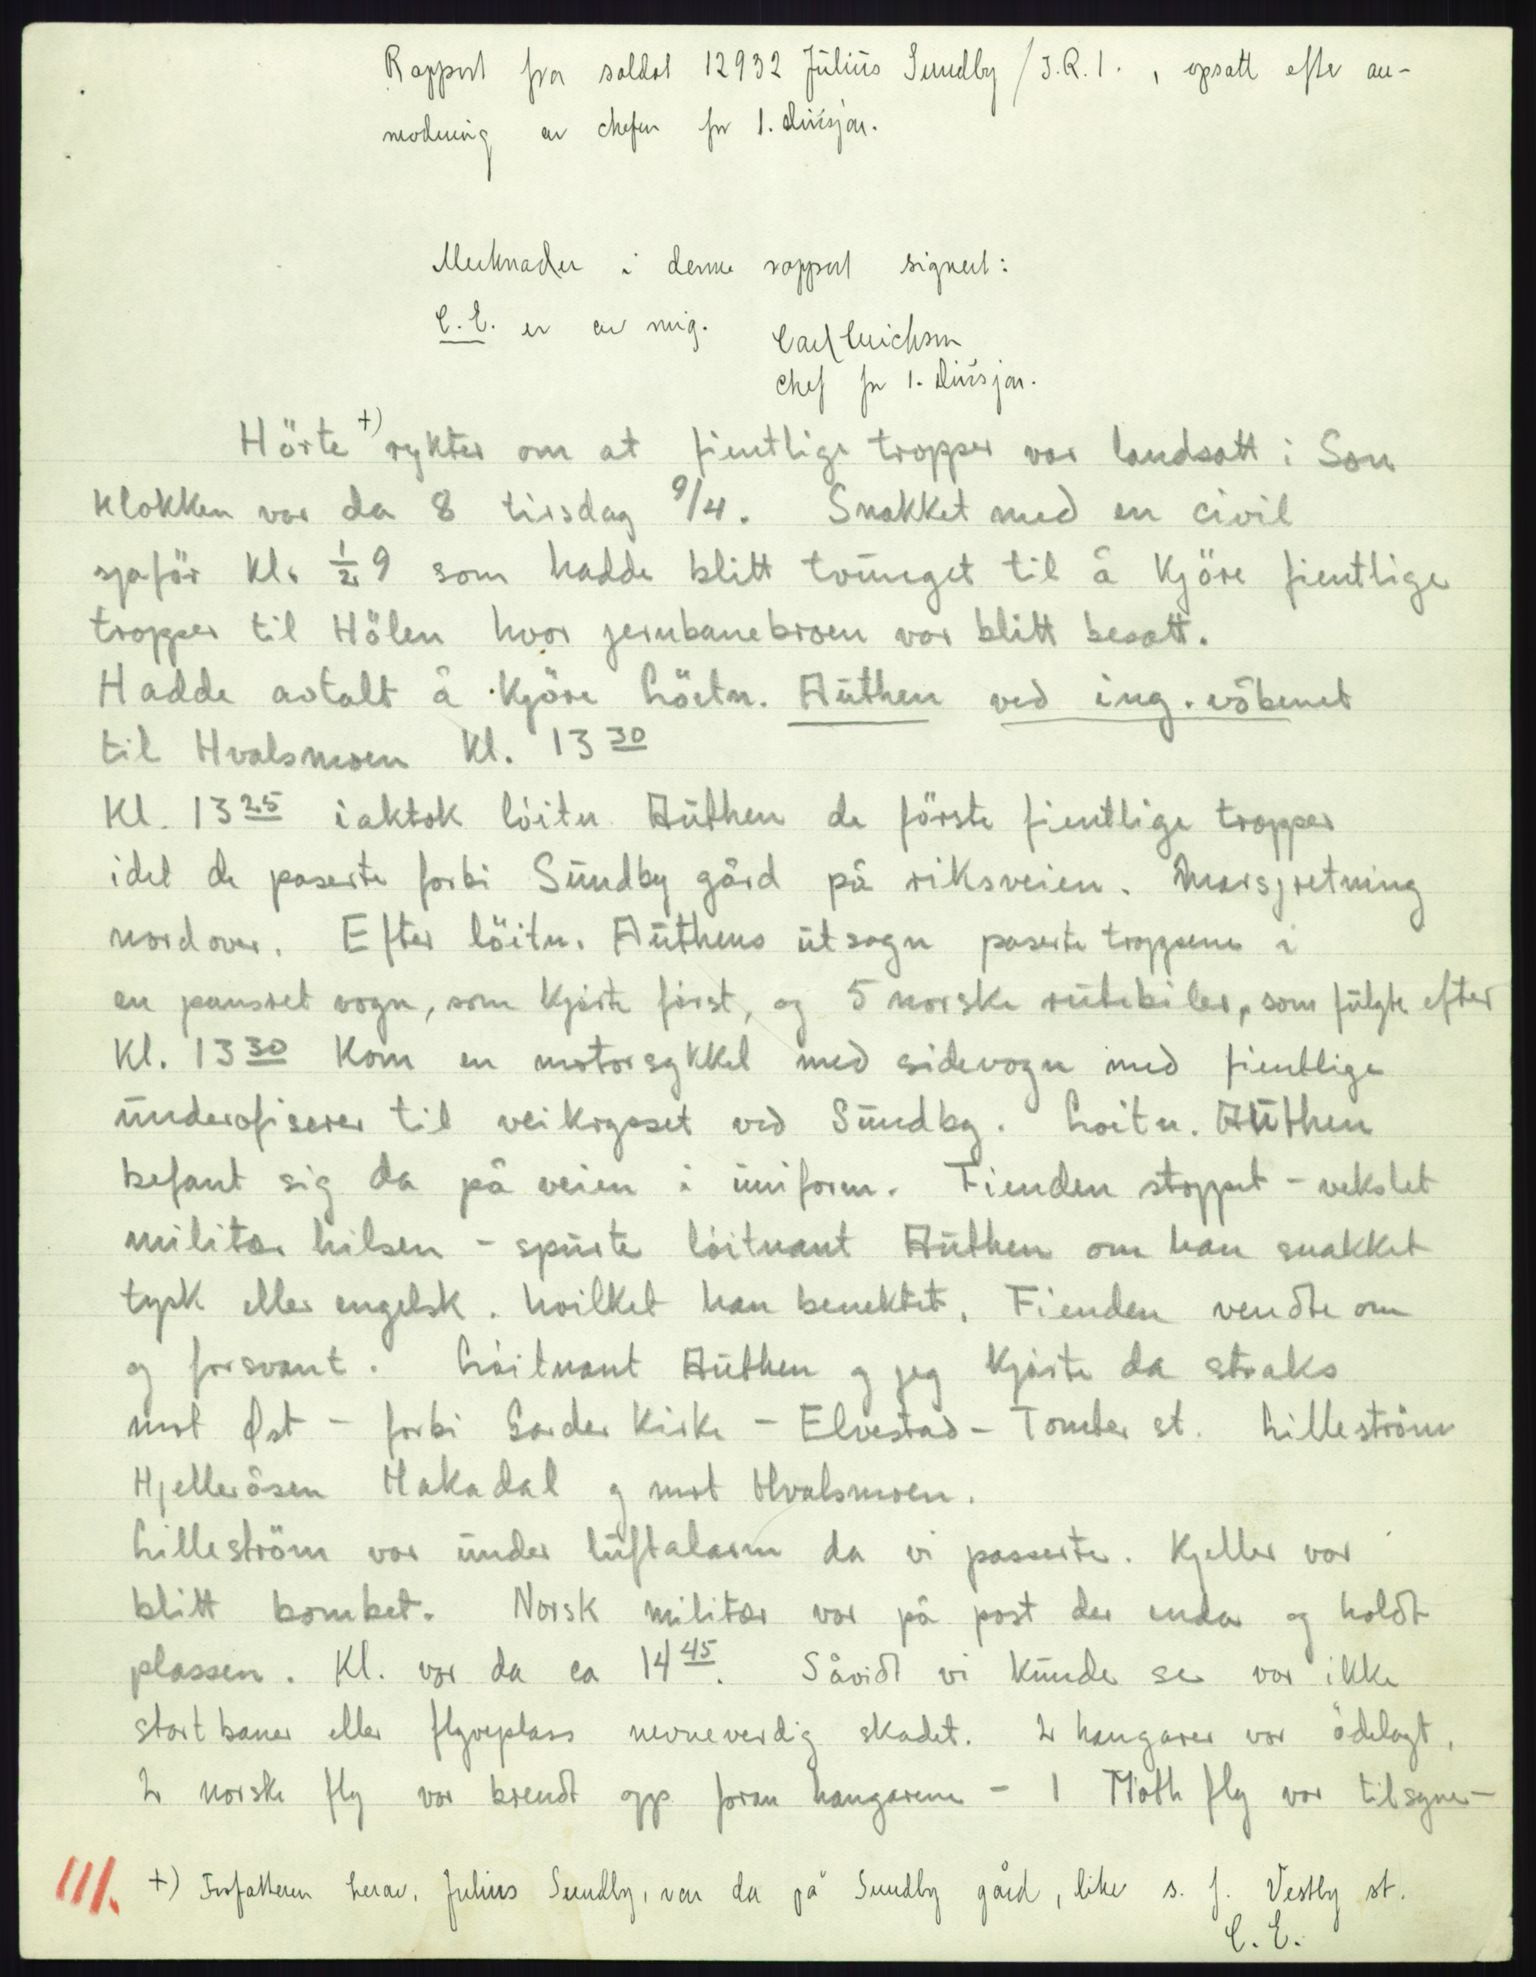 Rapport fra soldat 12932 Julius Sundby / I.R.1. , opsatt efter an-
modning av chefen for 1. divisjon.
Merknader i denne rapport signert:
C.E. er av mig.
Carl Erichsen
Chef for 1. divisjon.
Hörte +) rykter om at fientlige tropper var landsatt i Son
klokken var da 8 tirsdag 9/4. Snakket med en civil
sjaför kl. ½ 9 som hadde blitt tvunget til å kjöre fientlige
tropper til Hölen hvor jernbanebroen var blitt besatt.
Hadde avtalt å kjöre Löitn. Authen ved ing. våbenet
til Hvalsmoen kl. 13 30
Kl. 13 25 iaktok löitn Authen de förste fientlige tropper
idet de paserte forbi Sundby gård på riksveien. Marsjretning
nordover. Efter löitn. Authens utsagn paserte troppene i
en pansret vogn, som kjörte först, og 5 norske rutebiler, som fulgte efter
Kl. 13 30 kom en motorsykkel med sidevogn med fientlige
underofiserer til veikrysset ved Sundby. Loitn. Authen
befant sig da på veien i uniform. Fienden stoppet – vekslet
militær hilsen – spurte löitnant Authen om han snakket
tysk eller engelsk. hvilket han benektet. Fienden vendte om
og forsvant. Löitnant Authen og jeg kjörte da straks
mot Øst – forbi Garder Kirke – Elvestad – Tomter st. Lilleström
Hjelleråsen Hakadal og mot Hvalsmoen.
Lilleström var under luftalarm da vi passerte. Kjeller var
blitt bombet. Norsk militær var på post der enda og holdt
plassen. Kl. var da ca 14 45. Såvidt vi kunde se var ikke
startbaner eller flyveplass nevneverdig skadet. 2 hangarer var ödelagt,
2 norske fly var brendt opp foran hangarene – 1 Moth fly var tilsyne-
111. +) Forfatteren herav, Julius Sundby, var da på Sundby gård, like s. f. Vestby st.
C. E.